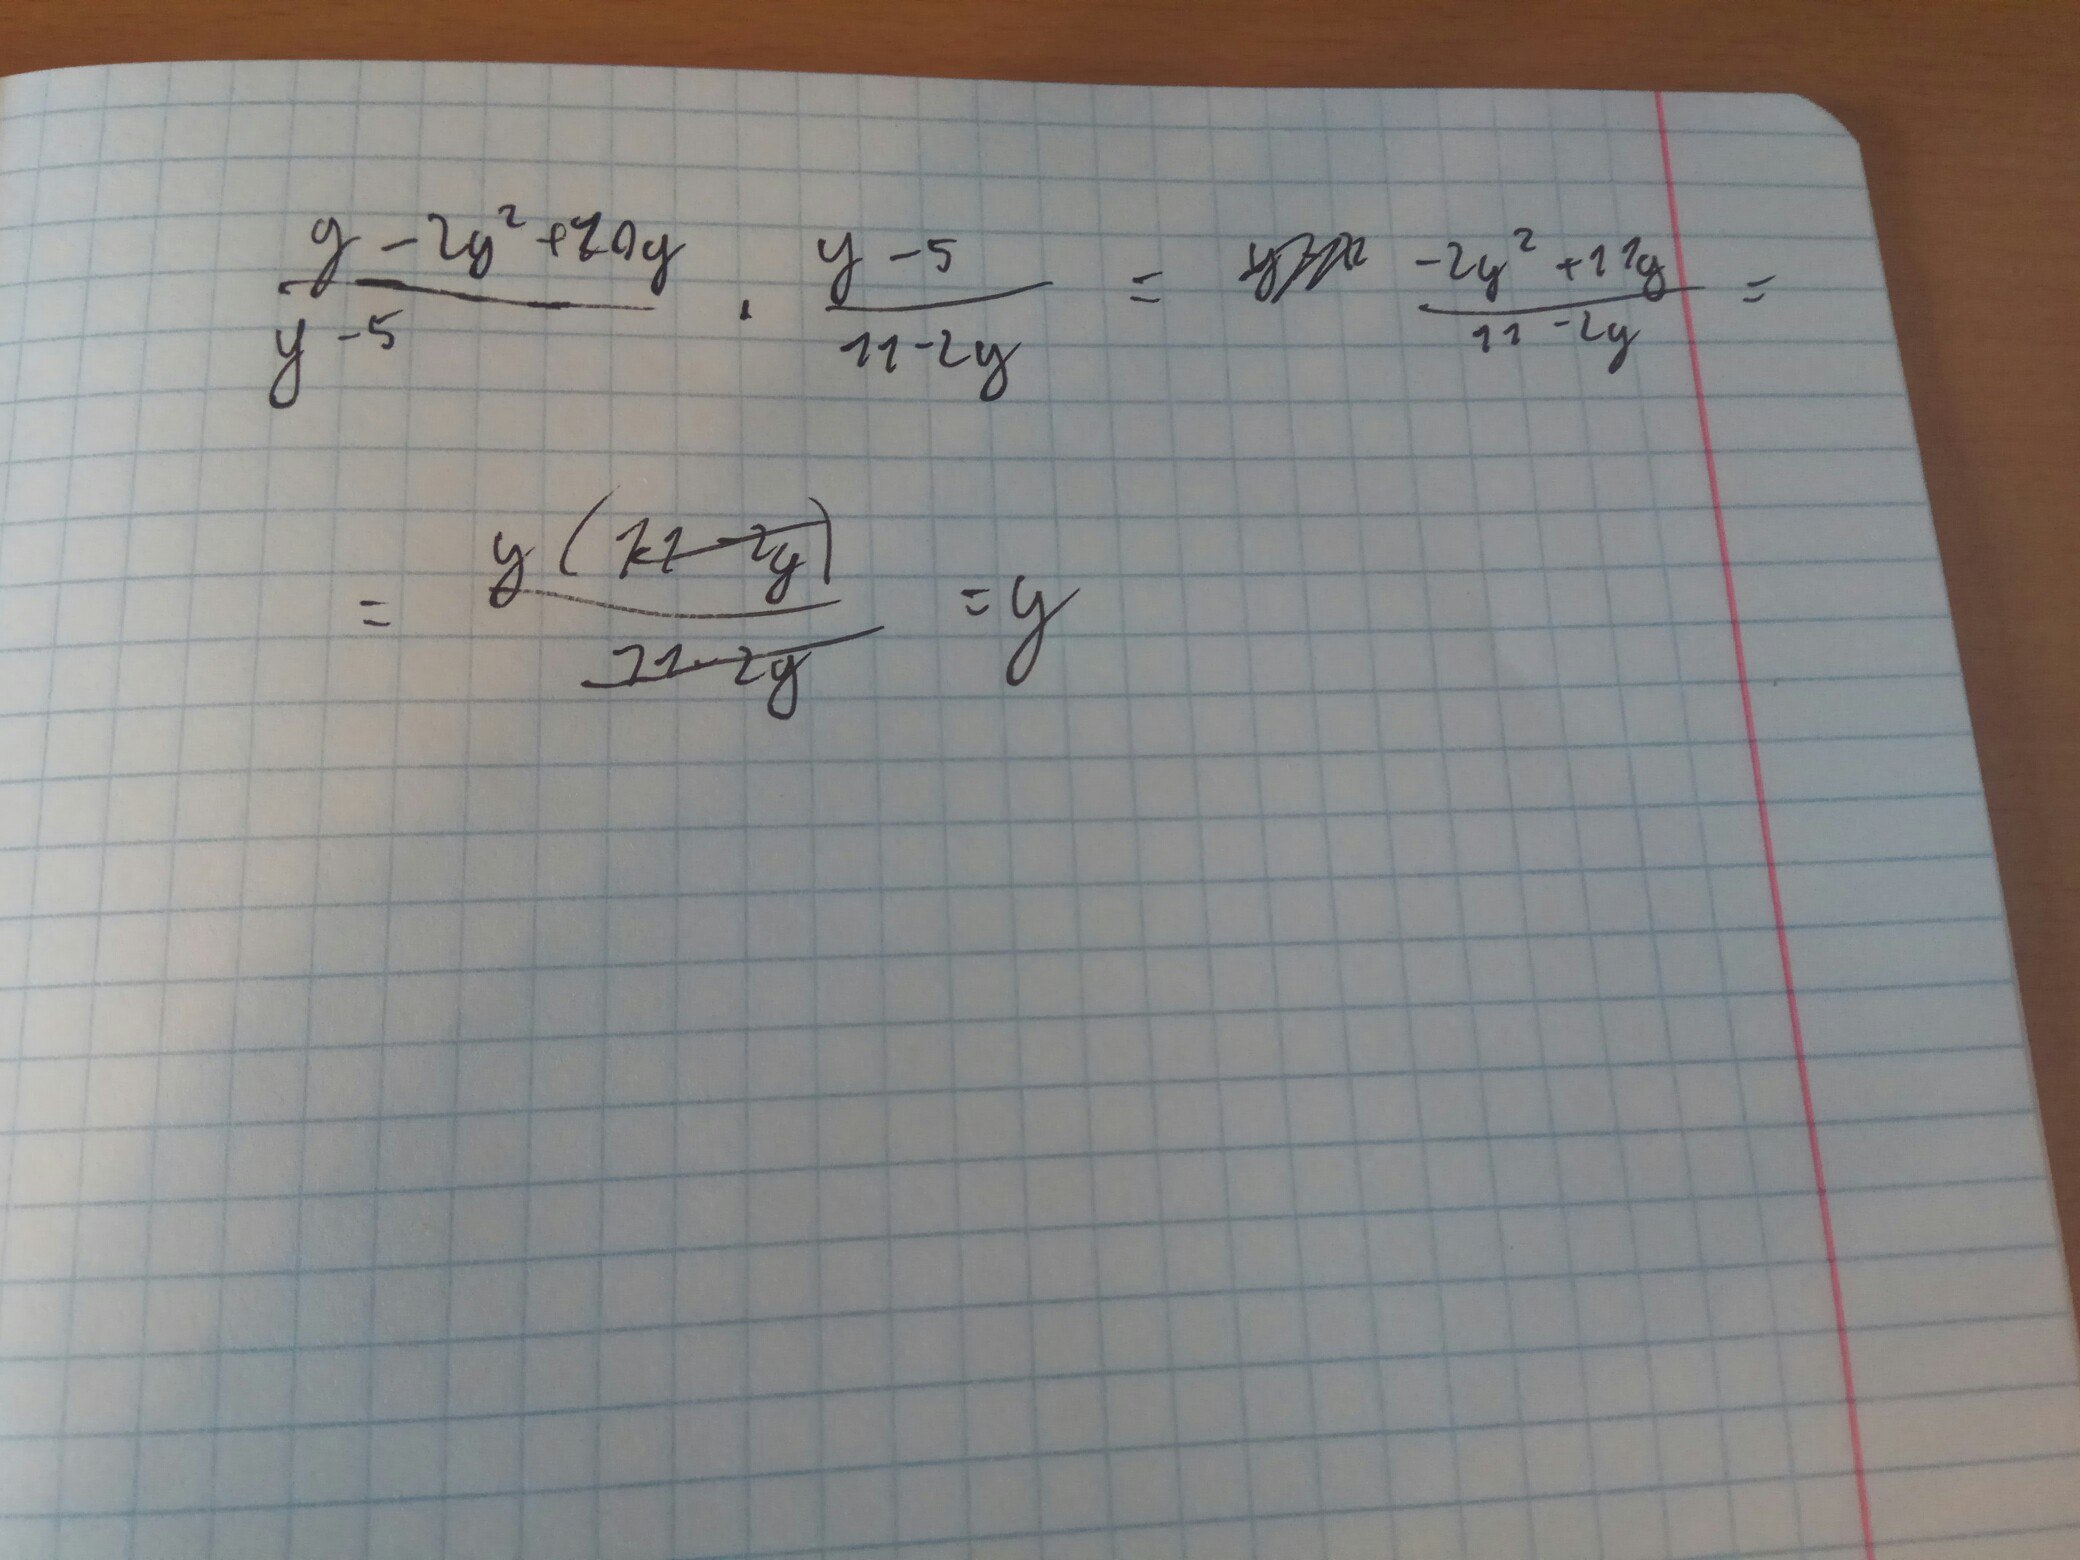 y - 2y² + 10y / y - 5 · y - 5 / 11 - 2y = -2y² + 11y / 11 - 2y =
= y(11 - 2y) / 11 - 2y = y